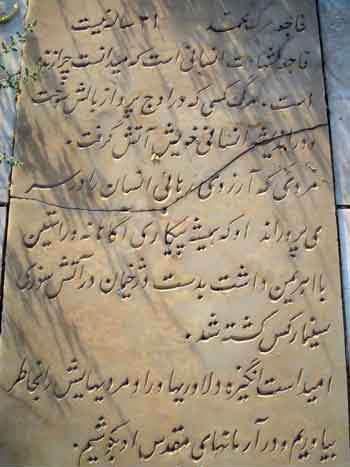 فاجعه مرگ نیست
فاجعه انسانی است که میدانست چرا زنده
است . مرگ کسی که در اوج پرواز بالش سوخت
و در اندیشه انسانی خویش آتش گرفت .
مردی که آرزوی رهائی انسان را در سر
می پروراند او که همیشه پیکاری آگاهانه و راستین
با اهریمن داشت بدست دژخیمان در آتش سوزی
سینما رکس کشته شد .
امید است انگیزه دلاوریها و رادمردیهایش را بخاطر
بیاوریم و در آرمانهای مقدس او بکوشیم .